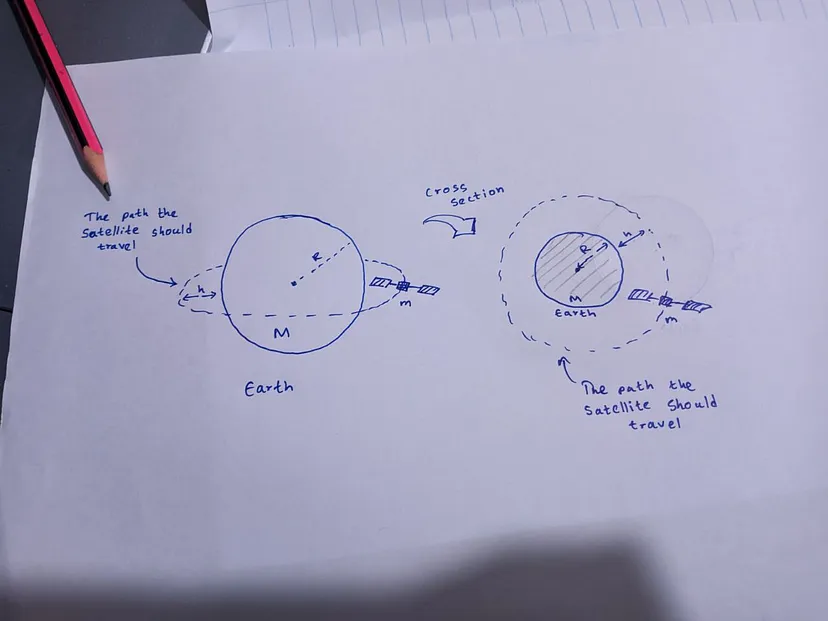 The path the
Satellite should
travel
h
R
M
m
Earth
Cross
section
R
h
M
Earth
m
The path the
Satellite Should
travel